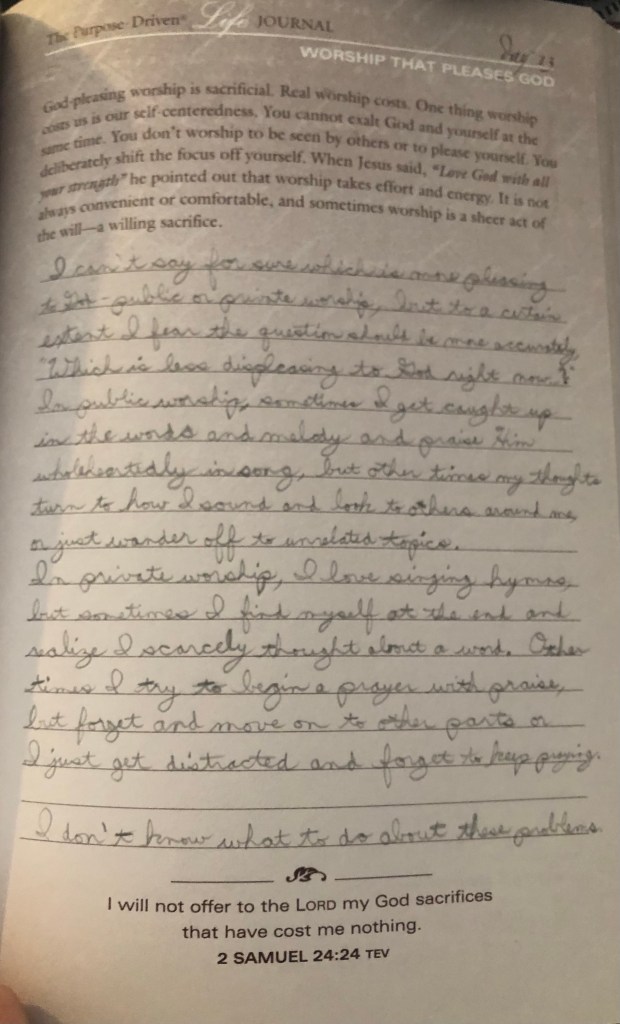 The Purpose-Driven® Life JOURNAL
Day 13
WORSHIP THAT PLEASES GOD
God-pleasing worship is sacrificial. Real worship costs. One thing worship
costs us is our self-centeredness. You cannot exalt God and yourself at the
same time. You don't worship to be seen by others or to please yourself. You
deliberately shift the focus off yourself. When Jesus said, "Love God with all
your strength" he pointed out that worship takes effort and energy. It is not
always convenient or comfortable, and sometimes worship is a sheer act of
the will—a willing sacrifice.
I can't say for sure which is more pleasing
to God - public or private worship, but to a certain
extent I fear the question should be more accurately,
"Which is less displeasing to God right now?"
In public worship, sometimes I get caught up
in the words and melody and praise Him
wholeheartedly in song, but other times my thoughts
turn to how I sound and look to others around me,
or just wander off to unrelated topics.
In private worship, I love singing hymns,
but sometimes I find myself at the end and
realize I scarcely thought about a word. Other
times I try to begin a prayer with praise,
but forget and move on to other parts or
I just get distracted and forget to keep praying.
I don't know what to do about these problems.
I will not offer to the LORD my God sacrifices
that have cost me nothing.
2 SAMUEL 24:24 TEV